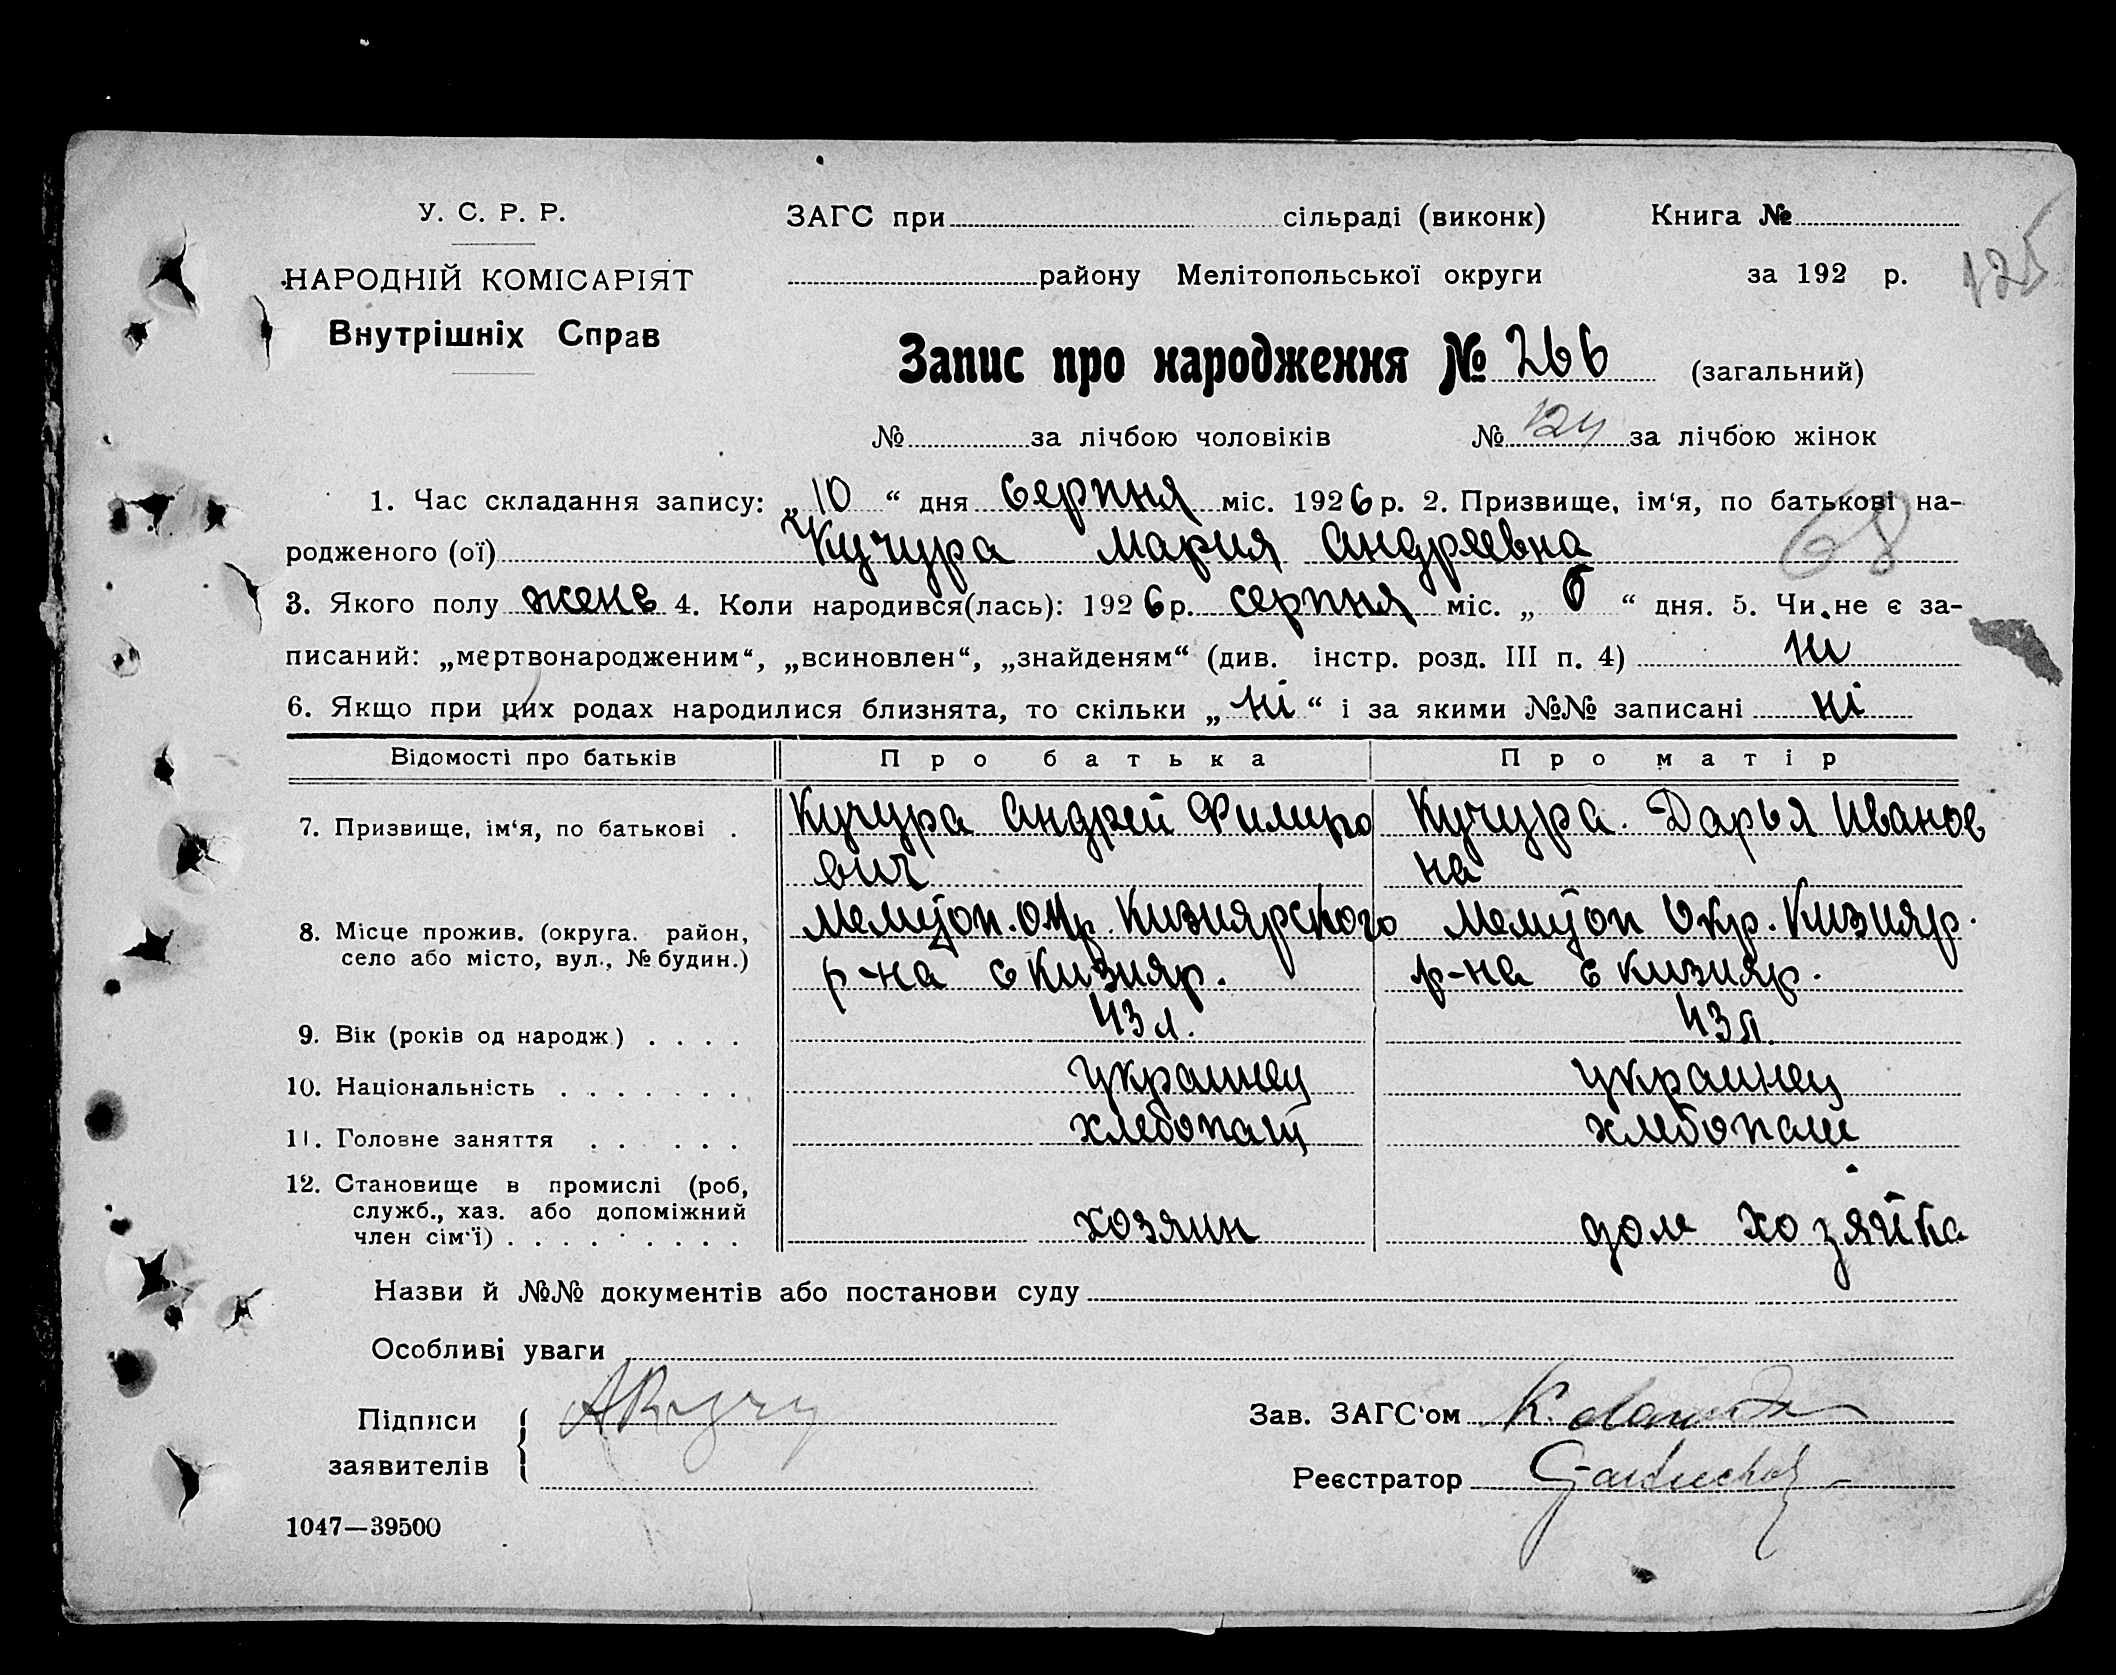 У. С. Р. Р.
НАРОДНІЙ КОМІСАРІЯТ
Внутрішніх Справ
ЗАГС при сільраді (виконк) Книга №
району Мелітопольської округи за 192 р.
125
Запис про народження № 266 (загальний)
№ за лічбою чоловіків № 124 за лічбою жінок
1. Час складання запису: „10“ дня серпня міс. 1926 р. 2. Призвище, ім‘я, по батькові на-
родженого (ої) Кучура Мария Андреевна
68
3. Якого полу жене 4. Коли народився(лась): 1926 р. серпня міс. „6“ дня. 5. Чи не є за-
писаний: „мертвонародженим“, „всиновлен“, „знайденям“ (див. інстр. розд. III п. 4) ні
6. Якщо при цих родах народилися близнята, то скільки „ні“ і за якими №№ записані ні
Відомості про батьків Про батька Про матір
7. Призвище, ім‘я, по батькові . Кучура Андрей Филипо Кучура. Дарья Иванов
вич на
8. Місце прожив. (округа. район, село або місто, вул., № будин.) Мелитоп. окр. Кизиярского Мелитоп Окр. Кизияр.
р-на с Кизияр. р-на с Кизияр.
9. Вік (років од народж) . . . . 43 л. 43 л.
10. Національність . . . . . . . украинец украинец
11. Головне заняття . . . . . хлебопащ хлебопаш
12. Становище в промислі (роб,
служб., хаз. або допоміжний
член сім‘ї) . . . . . . . . . хозяин дом хозяйка
Назви й №№ документів або постанови суду
Особливі уваги
Підписи
заявителів
Зав. ЗАГС‘ом
Реєстратор
1047—39500